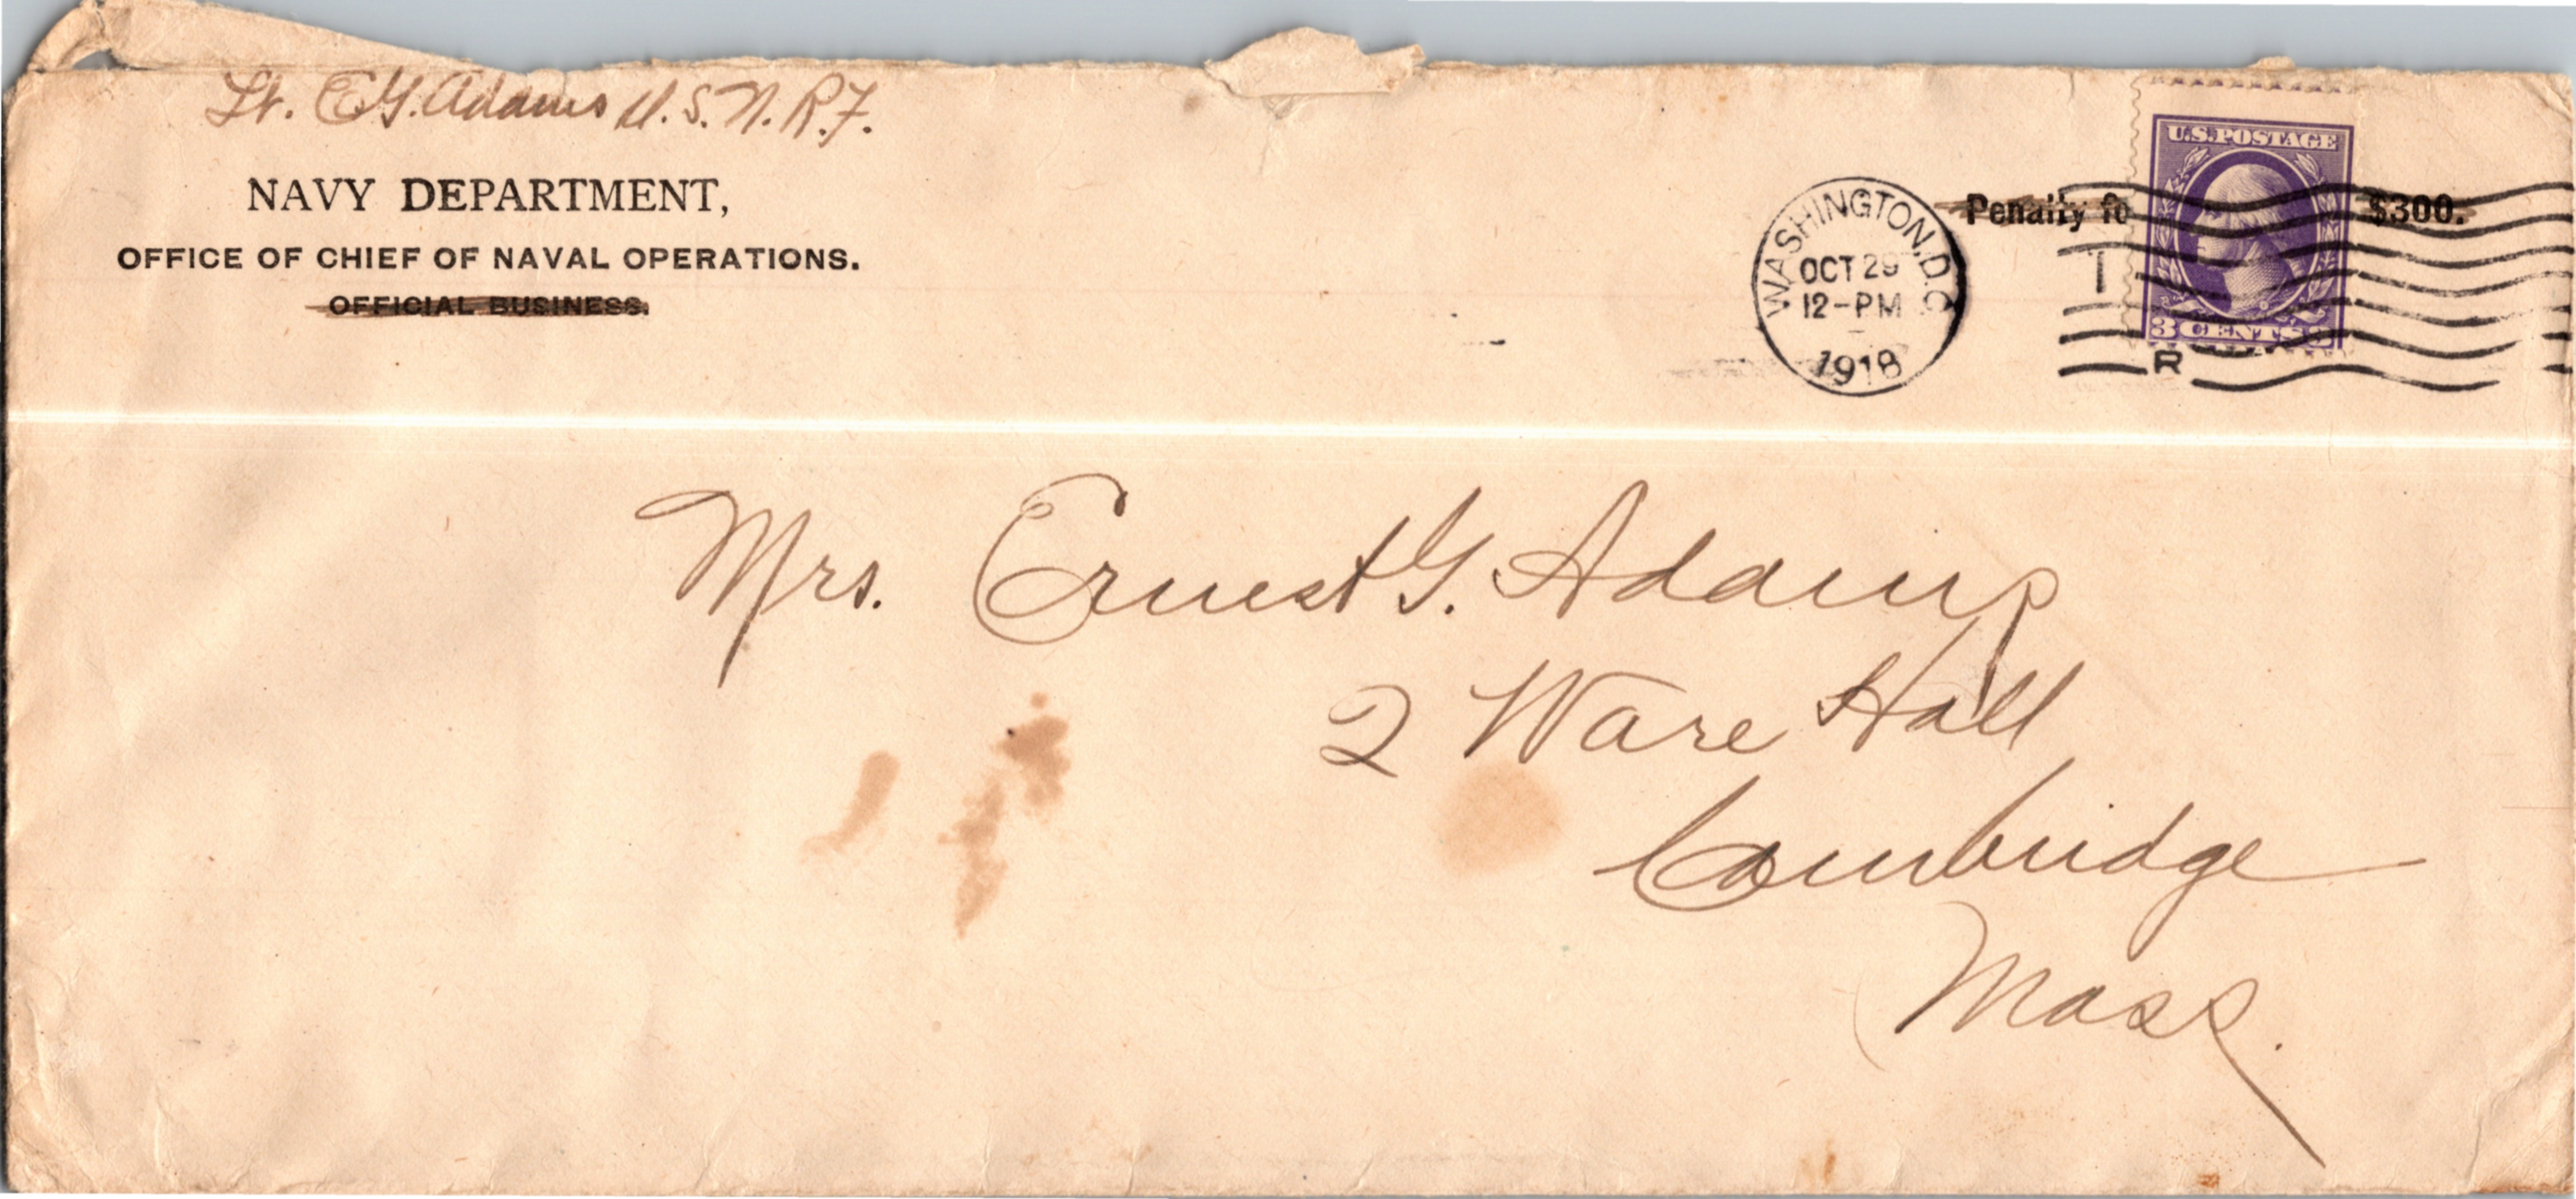 Lt. E G. Adams U.S.N.R.F.
NAVY DEPARTMENT,
OFFICE OF CHIEF OF NAVAL OPERATIONS.
OFFICIAL BUSINESS.
WASHINGTON, D.C.
OCT 29
12-PM
1918
Penalty fo
$300.
U.S. POSTAGE
3 CENTS 3
R
Mrs. Ernest G. Adams
2 Ware Hall
Cambridge
Mass.